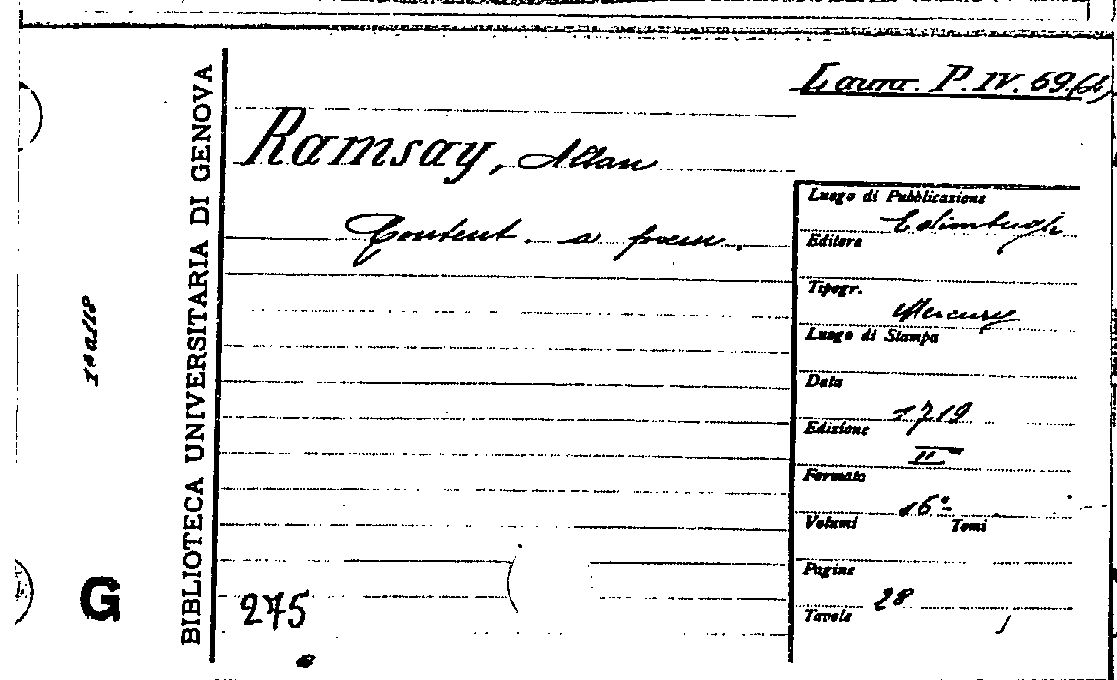 Laura. P. IV. 69.(4)
Ramsay, Allan
Content. a poem.
Luogo di Pubblicazione
Edimburgh
Editore
Tipogr.
Mercury
Luogo di Stampa
Data
1719
Edizione
II
Formato
16º
Volumi Tomi
Pagine
28
Tavole
BIBLIOTECA UNIVERSITARIA DI GENOVA
G
275